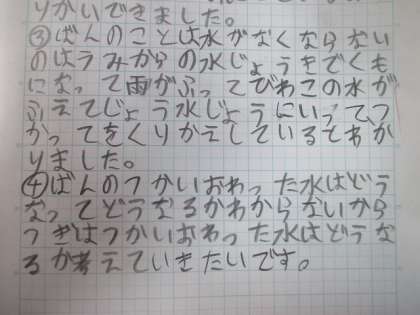 りかいできました。
③ばんのことは水がなくならない
のはうみからの水じょうきでくも
になって雨がふってびわこの水が
ふえてじょう水じょうにいって、つ
かってをくりかえしているとわか
りました。
④ばんのつかいおわった水はどう
なってどうなるかわからないから
つぎはつかいおわった水はどうな
るか考えていきたいです。